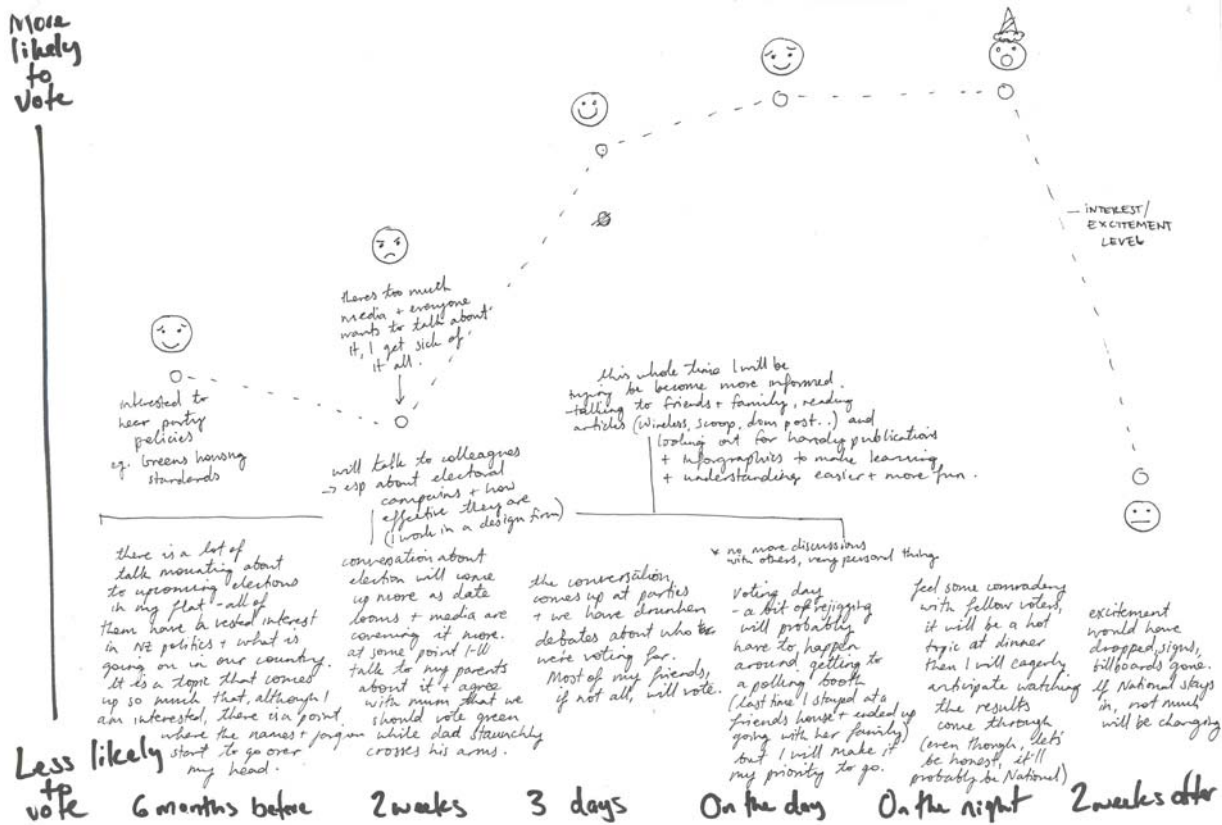 More
likely
to
vote
INTEREST/
EXCITEMENT
LEVEL
theres too much
media + everyone
wants to talk about
it, I get sick of
it all.
interested to
hear party
policies
eg. Greens housing
standards
this whole time I will be
trying be become more informed.
-talking to friends + family, reading
articles (Wireless, scoop, dom post..) and
looking out for handy publications
+ infographics to make learning
+ understanding easier + more fun.
will talk to colleagues
→ esp about electoral
campains + how
effective they are
(I work in a design firm)
there is a lot of
talk mounting about
to upcoming elections
in my flat - all of
them have a vested interest
in NZ politics + what is
going on in our country.
It is a topic that comes
up so much that, although I
am interested, there is a point
where the names + jargon
start to go over
my head.
conversation about
election will come
up more as date
looms + media are
covering it more.
at some point I'll
talk to my parents
about it + agree
with mum that we
should vote green
while dad staunchly
crosses his arms.
the conversation
comes up at parties
+ we have drunken
debates about who
we're voting for.
Most of my friends,
if not all, will vote.
* no more discussions
with others, very personal thing
voting day
- a bit of rejigging
will probably
have to happen
around getting to
a polling booth
(last time I stayed at a
friends house + ended up
going with her family)
but I will make it
my priority to go.
feel some comradery
with fellow voters,
it will be a hot
topic at dinner
then I will eagerly
anticipate watching
the results
come through
(even though, let's
be honest, it'll
probably be National)
excitement
would have
dropped, signs,
billboards gone.
If National stays
in, not much
will be changing
Less likely
to
vote
6 months before
2 weeks
3 days
On the day
On the night
2 weeks after